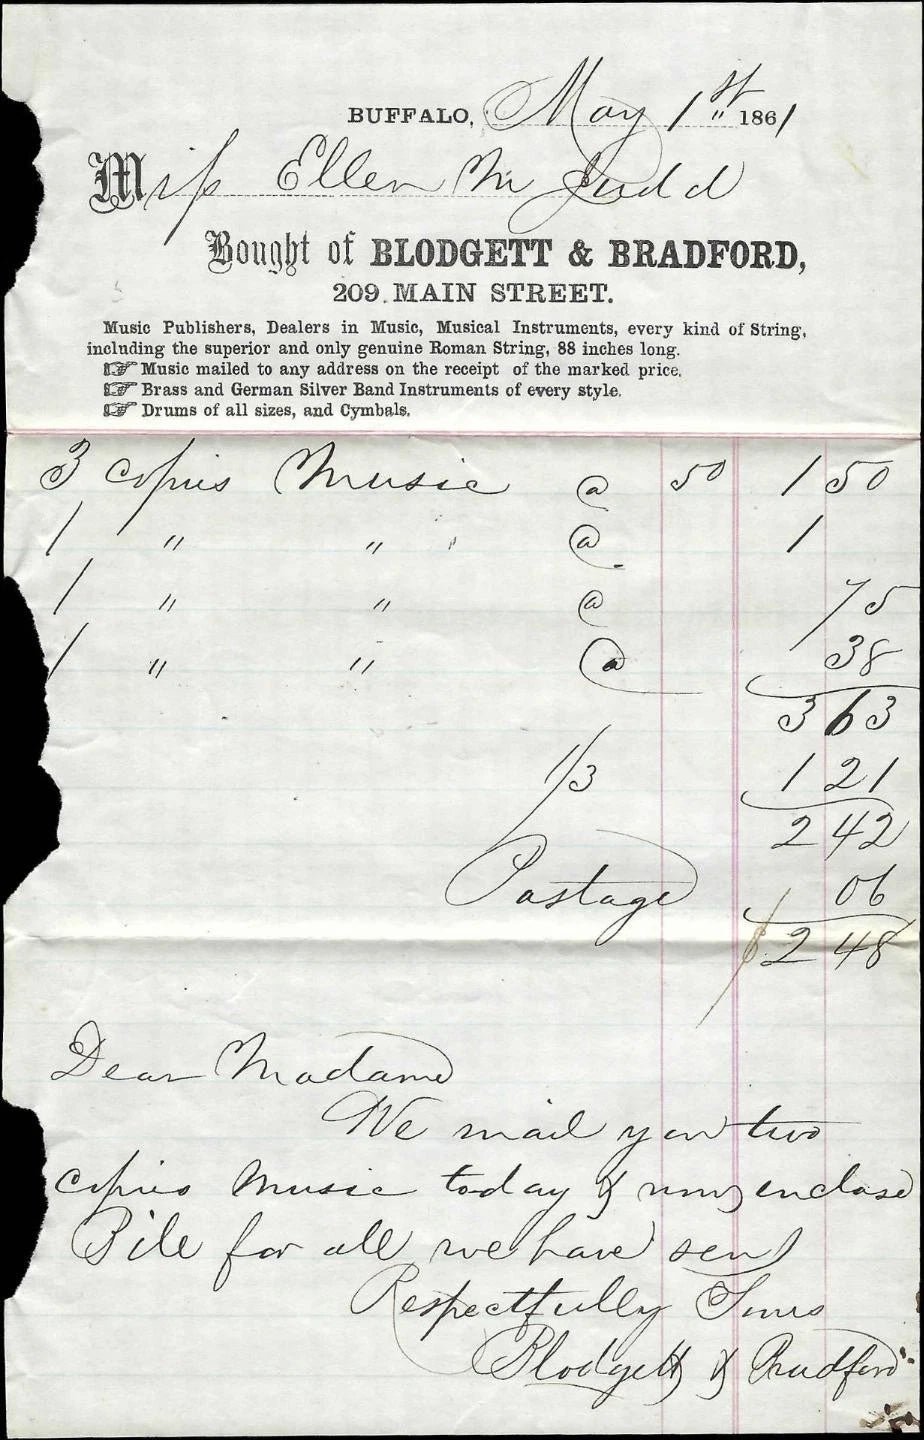 BUFFALO, May 1st 1861
Miss Ellen M Judd
Bought of BLODGETT & BRADFORD,
209 MAIN STREET.
Music Publishers, Dealers in Music, Musical Instruments, every kind of String,
including the superior and only genuine Roman String, 88 inches long.
☞ Music mailed to any address on the receipt of the marked price.
☞ Brass and German Silver Band Instruments of every style.
☞ Drums of all sizes, and Cymbals.
3 copies Music @ 50 1 50
1 " " @ 1
1 " " @ 75
1 " " @ 38
3 63
1/3 1 21
2 42
Postage 06
$2 48
Dear Madame
We mail you two
copies Music today & enclose
Bill for all we have sent
Respectfully Yours
Blodgett & Bradford